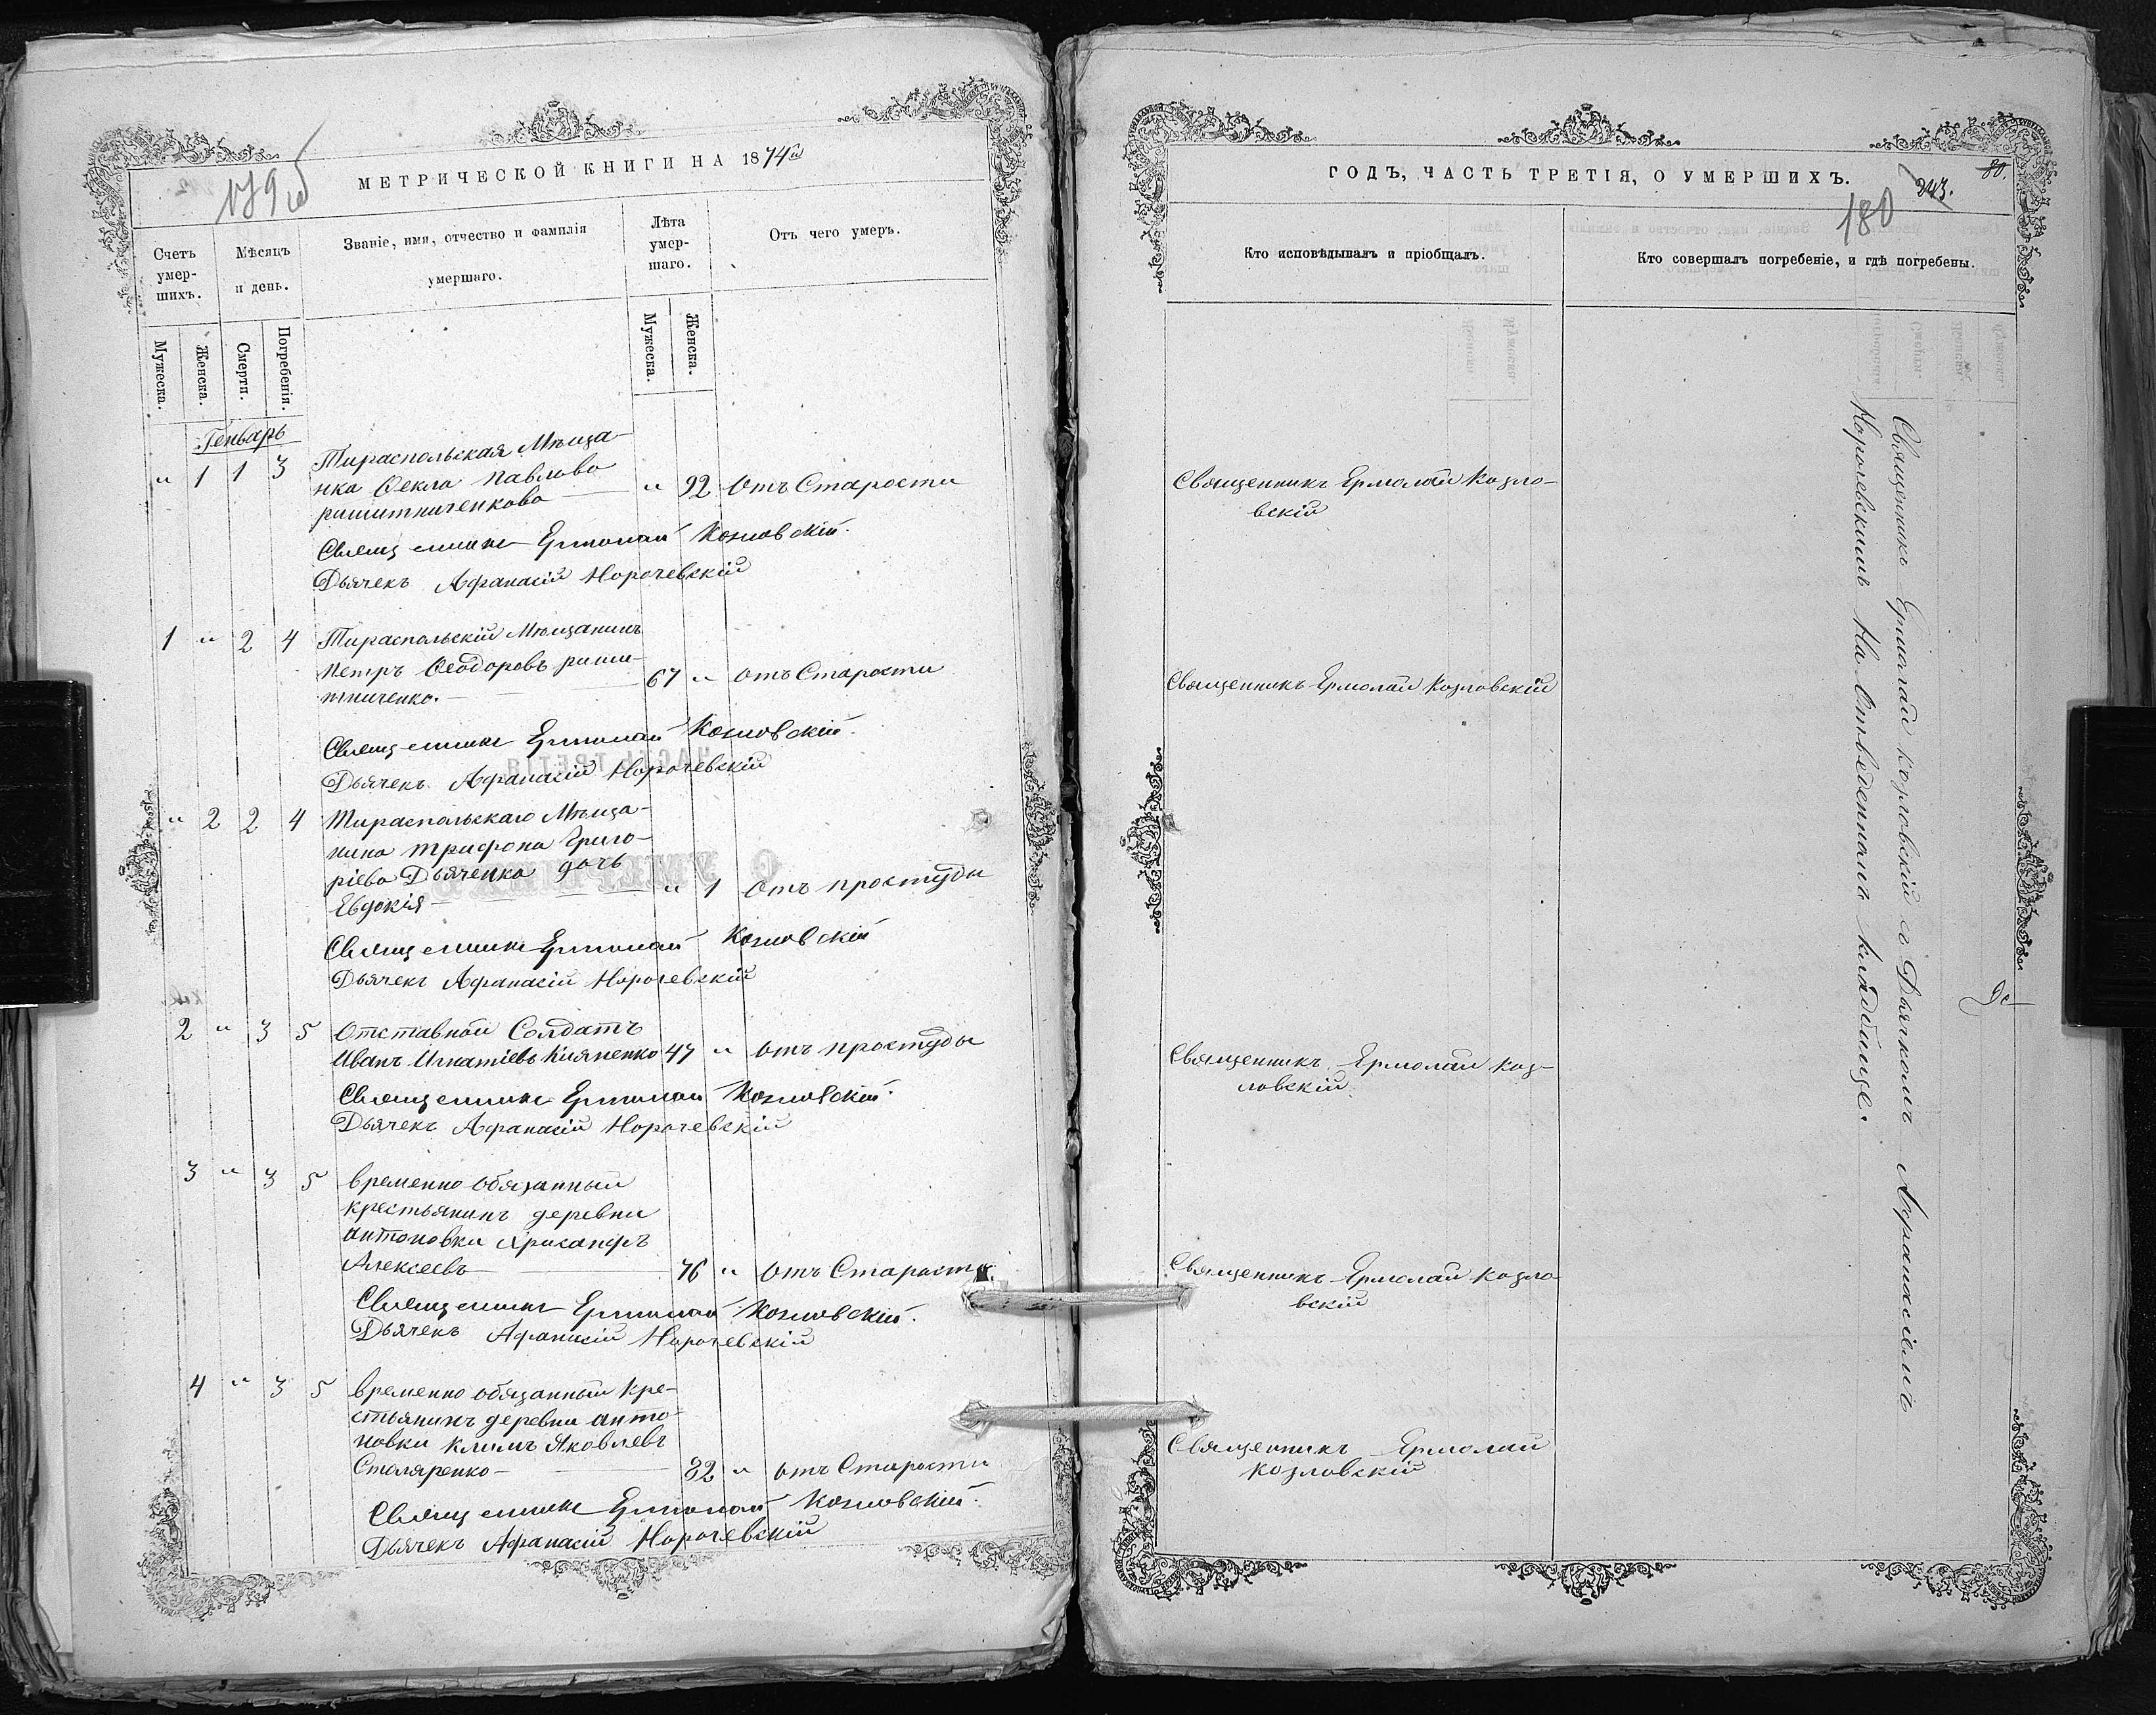 179 об
МЕТРИЧЕСКОЙ КНИГИ НА 1874й
Счетъ умершихъ.
Мѣсяцъ и день.
Званіе, имя, отчество и фамилія умершаго.
Лѣта умершаго.
Отъ чего умеръ.
Мужеска.
Женска.
Смерти.
Погребенія.
Мужеска.
Женска.
Генварь
„ 1 1 3 Тираспольская Мѣща-
нка Ѳекла Павлова
„ 92 Отъ Старости
Священникъ Ермолай Козловскій.
Дьячекъ Афанасій Корочевскій
1 „ 2 4 Тираспольскій Мѣщанинъ
Петръ Ѳеодоровъ риши-
тниченко. 67 „ отъ Старости
Священникъ Ермолай Козловскій.
Дьячекъ Афанасій Корочевскій
„ 2 2 4 Тираспольскаго Мѣща-
нина Трифона Григо-
ріева Дьяченка дочь
Евдокія „ 1 Отъ простуды
Священникъ Ермолай Козловскій
Дьячекъ Афанасій Корочевскій
2 „ 3 5 Отставной Солдатъ
Иванъ Игнатіевъ Кияненко 47 „ отъ простуды
Священникъ Ермолай Козловскій.
Дьячекъ Афанасій Корочевскій
3 „ 3 5 временно обязанный
крестьянинъ деревни
антоновки Хрисанфъ
Алексеевъ 76 „ отъ Старости
Священникъ Ермолай Козловскій.
Дьячекъ Афанасій Корочевскій
4 „ 3 5 временно обязанный кре-
стьянинъ деревни анто-
новки климъ Яковлевъ
Столяренко 82 „ отъ Старости
Священникъ Ермолай Козловскій.
Дьячекъ Афанасій Корочевскій
ГОДЪ, ЧАСТЬ ТРЕТІЯ, О УМЕРШИХЪ.
80.
243.
180
Кто исповѣдывалъ и пріобщалъ.
Кто совершалъ погребеніе, и гдѣ погребены.
Священникъ Ермолай Козло-
вскій
Священникъ Ермолай Козловскій
Священникъ Ермолай Коз-
ловскій
Священникъ Ермолай Козло
вскій
Священникъ Ермолай
Козловскій
Священникъ Ермолай Козловскій съ Дьячкомъ Афанасіемъ
Корочевскимъ на Отведенномъ кладбище.